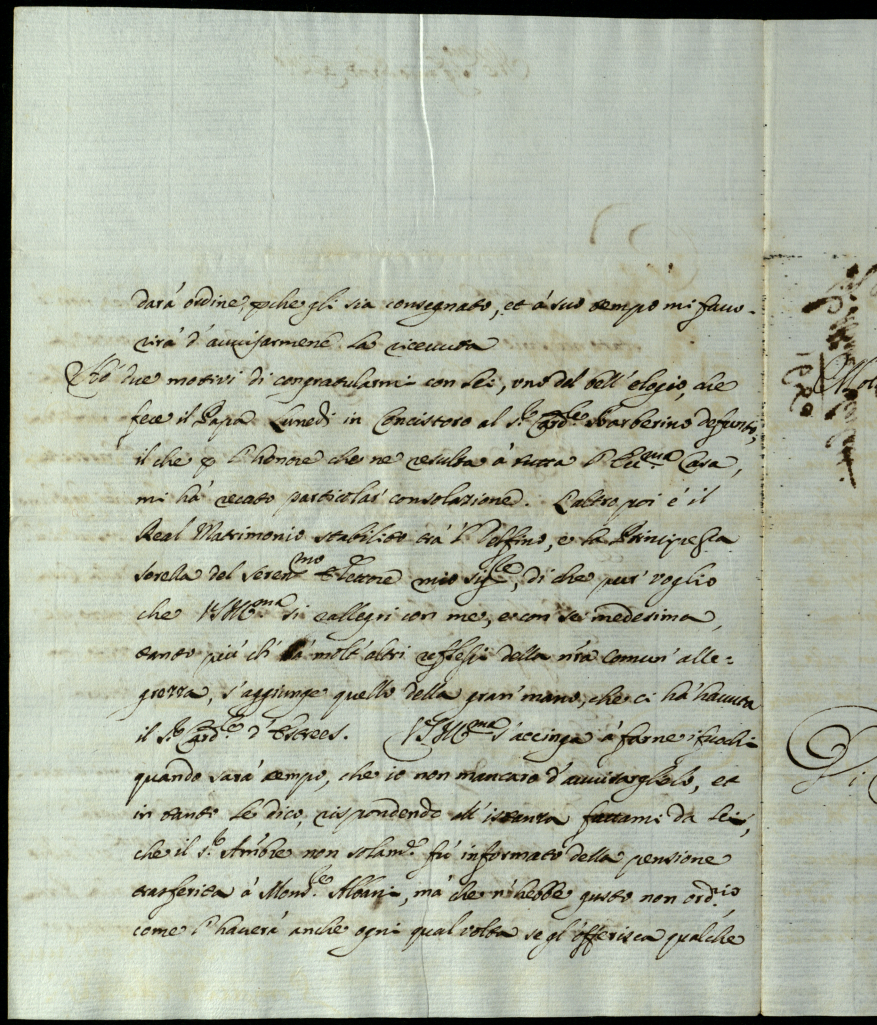 darà ordine, pche gli sia consegnato, et à suo tempo mi favo-
rirà d'avvisarmene la ricevuta
Hò due motivi di congratularmi con Lei, uno del bell'elogio, che
fece il Papa Lunedì in Concistoro al S.r Card.le Barberino defunto,
il che p l'honore che ne resulta à tutta l'Ecc.ma Casa,
mi hà recato particolar consolazione. L'altro poi è il
Real Matrimonio stabilito trà l' Delfino, e la Principessa
sorella del Seren.mo Elettore mio Sig.re, di che pur voglio
che VS Ill.ma si rallegri con me, e con sé medesima,
tanto più ch'à molt'altri reflessi della nra comun'alle=
grezza, s'aggiunge quello della gran mano, che ci hà havuta
il S.r Card.le d'Estrees. VS Ill.ma s'accinga à farne i fuochi
quando sarà tempo, che io non mancarò d'avvisarglielo, et
in tanto Le dico, rispondendo all'istanza fattami da Lei,
che il S.r Ambre non solam.te fù informato della pensione
trasferita à Mons.re Albani, mà che n'hebbe gusto non ord.rio,
come l'haverà anche ogni qual volta se gl'offerisca qualche
1680